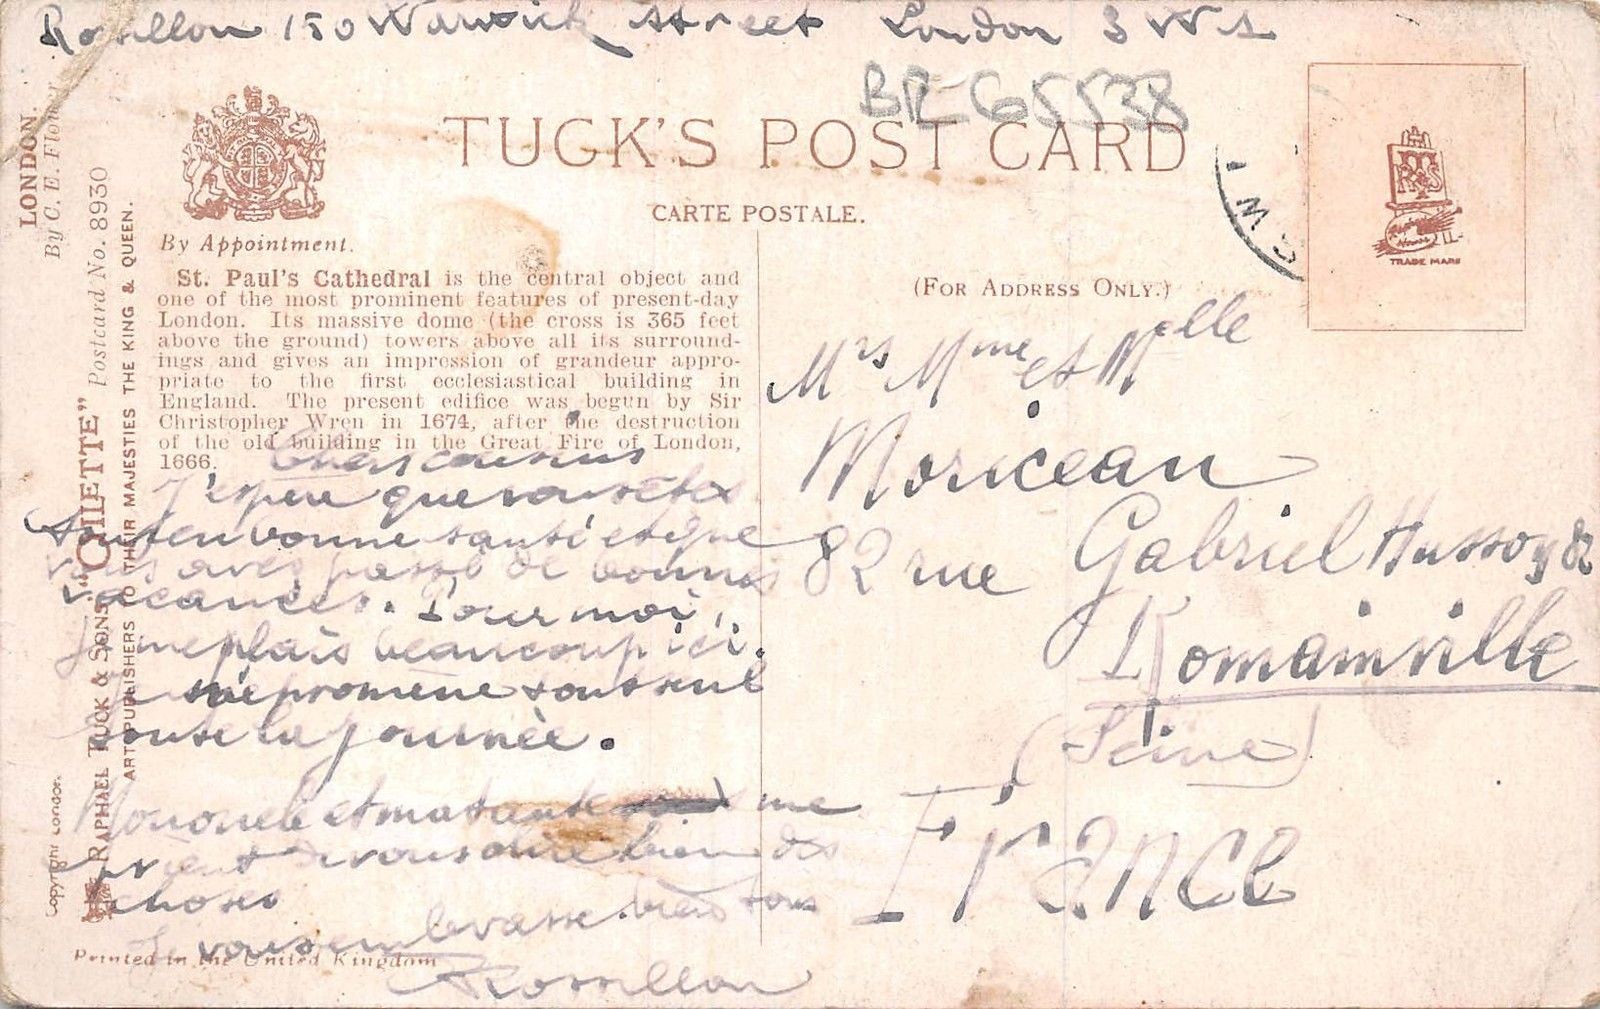 Rossillon 150 Warwick Street London SW1
BR-65538
LONDON.
By C. E. Flower
RAPHAEL TUCK & SONS' "OILETTE" Postcard No. 8930
ART PUBLISHERS TO THEIR MAJESTIES THE KING & QUEEN.
Copyright London.
TUCK'S POST CARD
CARTE POSTALE.
By Appointment.
St. Paul's Cathedral is the central object and
one of the most prominent features of present-day
London. Its massive dome (the cross is 365 feet
above the ground) towers above all its surround-
ings and gives an impression of grandeur appro-
priate to the first ecclesiastical building in
England. The present edifice was begun by Sir
Christopher Wren in 1674, after the destruction
of the old building in the Great Fire of London,
1666.
Chers cousins
J'espère que vous êtes
tous en bonne santé et que
vous avez passé de bonnes
vacances. Pour moi,
je me plais beaucoup ici.
Je me promène tout seul
toute la journée.
Mon oncle et ma tante me
prient de vous dire bien des
choses
Je vous embrasse bien tous
Rossillon
Printed in the United Kingdom
(FOR ADDRESS ONLY.)
S.W.1
TRADE MARK
Mrs Mme et Melle
Moriceau
82 rue Gabriel Husson 82
Romainville
(Seine)
FRANCE